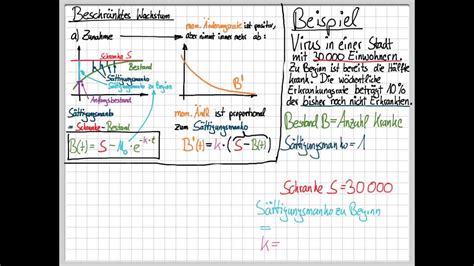 Beschränktes Wachstum
a) Zunahme
Schranke S
Bestand
Sättigungsmanko
Sättigungsmanko zu Beginn
Anfangsbestand
t
Sättigungsmanko
= Schranke - Bestand
B(t) = S - u₀ · e^(-k·t)
mom. Änderungsrate ist positiv,
aber nimmt immer mehr ab:
B'
t
mom. ÄndR ist proportional
zum Sättigungsmanko
B'(t) = k · (S - B(t))
Beispiel
Virus in einer Stadt
mit 30.000 Einwohnern.
Zu Beginn ist bereits die Hälfte
krank. Die wöchentliche
Erkrankungsrate beträgt 10%
der bisher noch nicht Erkrankten.
Bestand B = Anzahl Kranke
Sättigungsmanko = 1
Schranke S = 30 000
Sättigungsmanko zu Beginn
=
k =